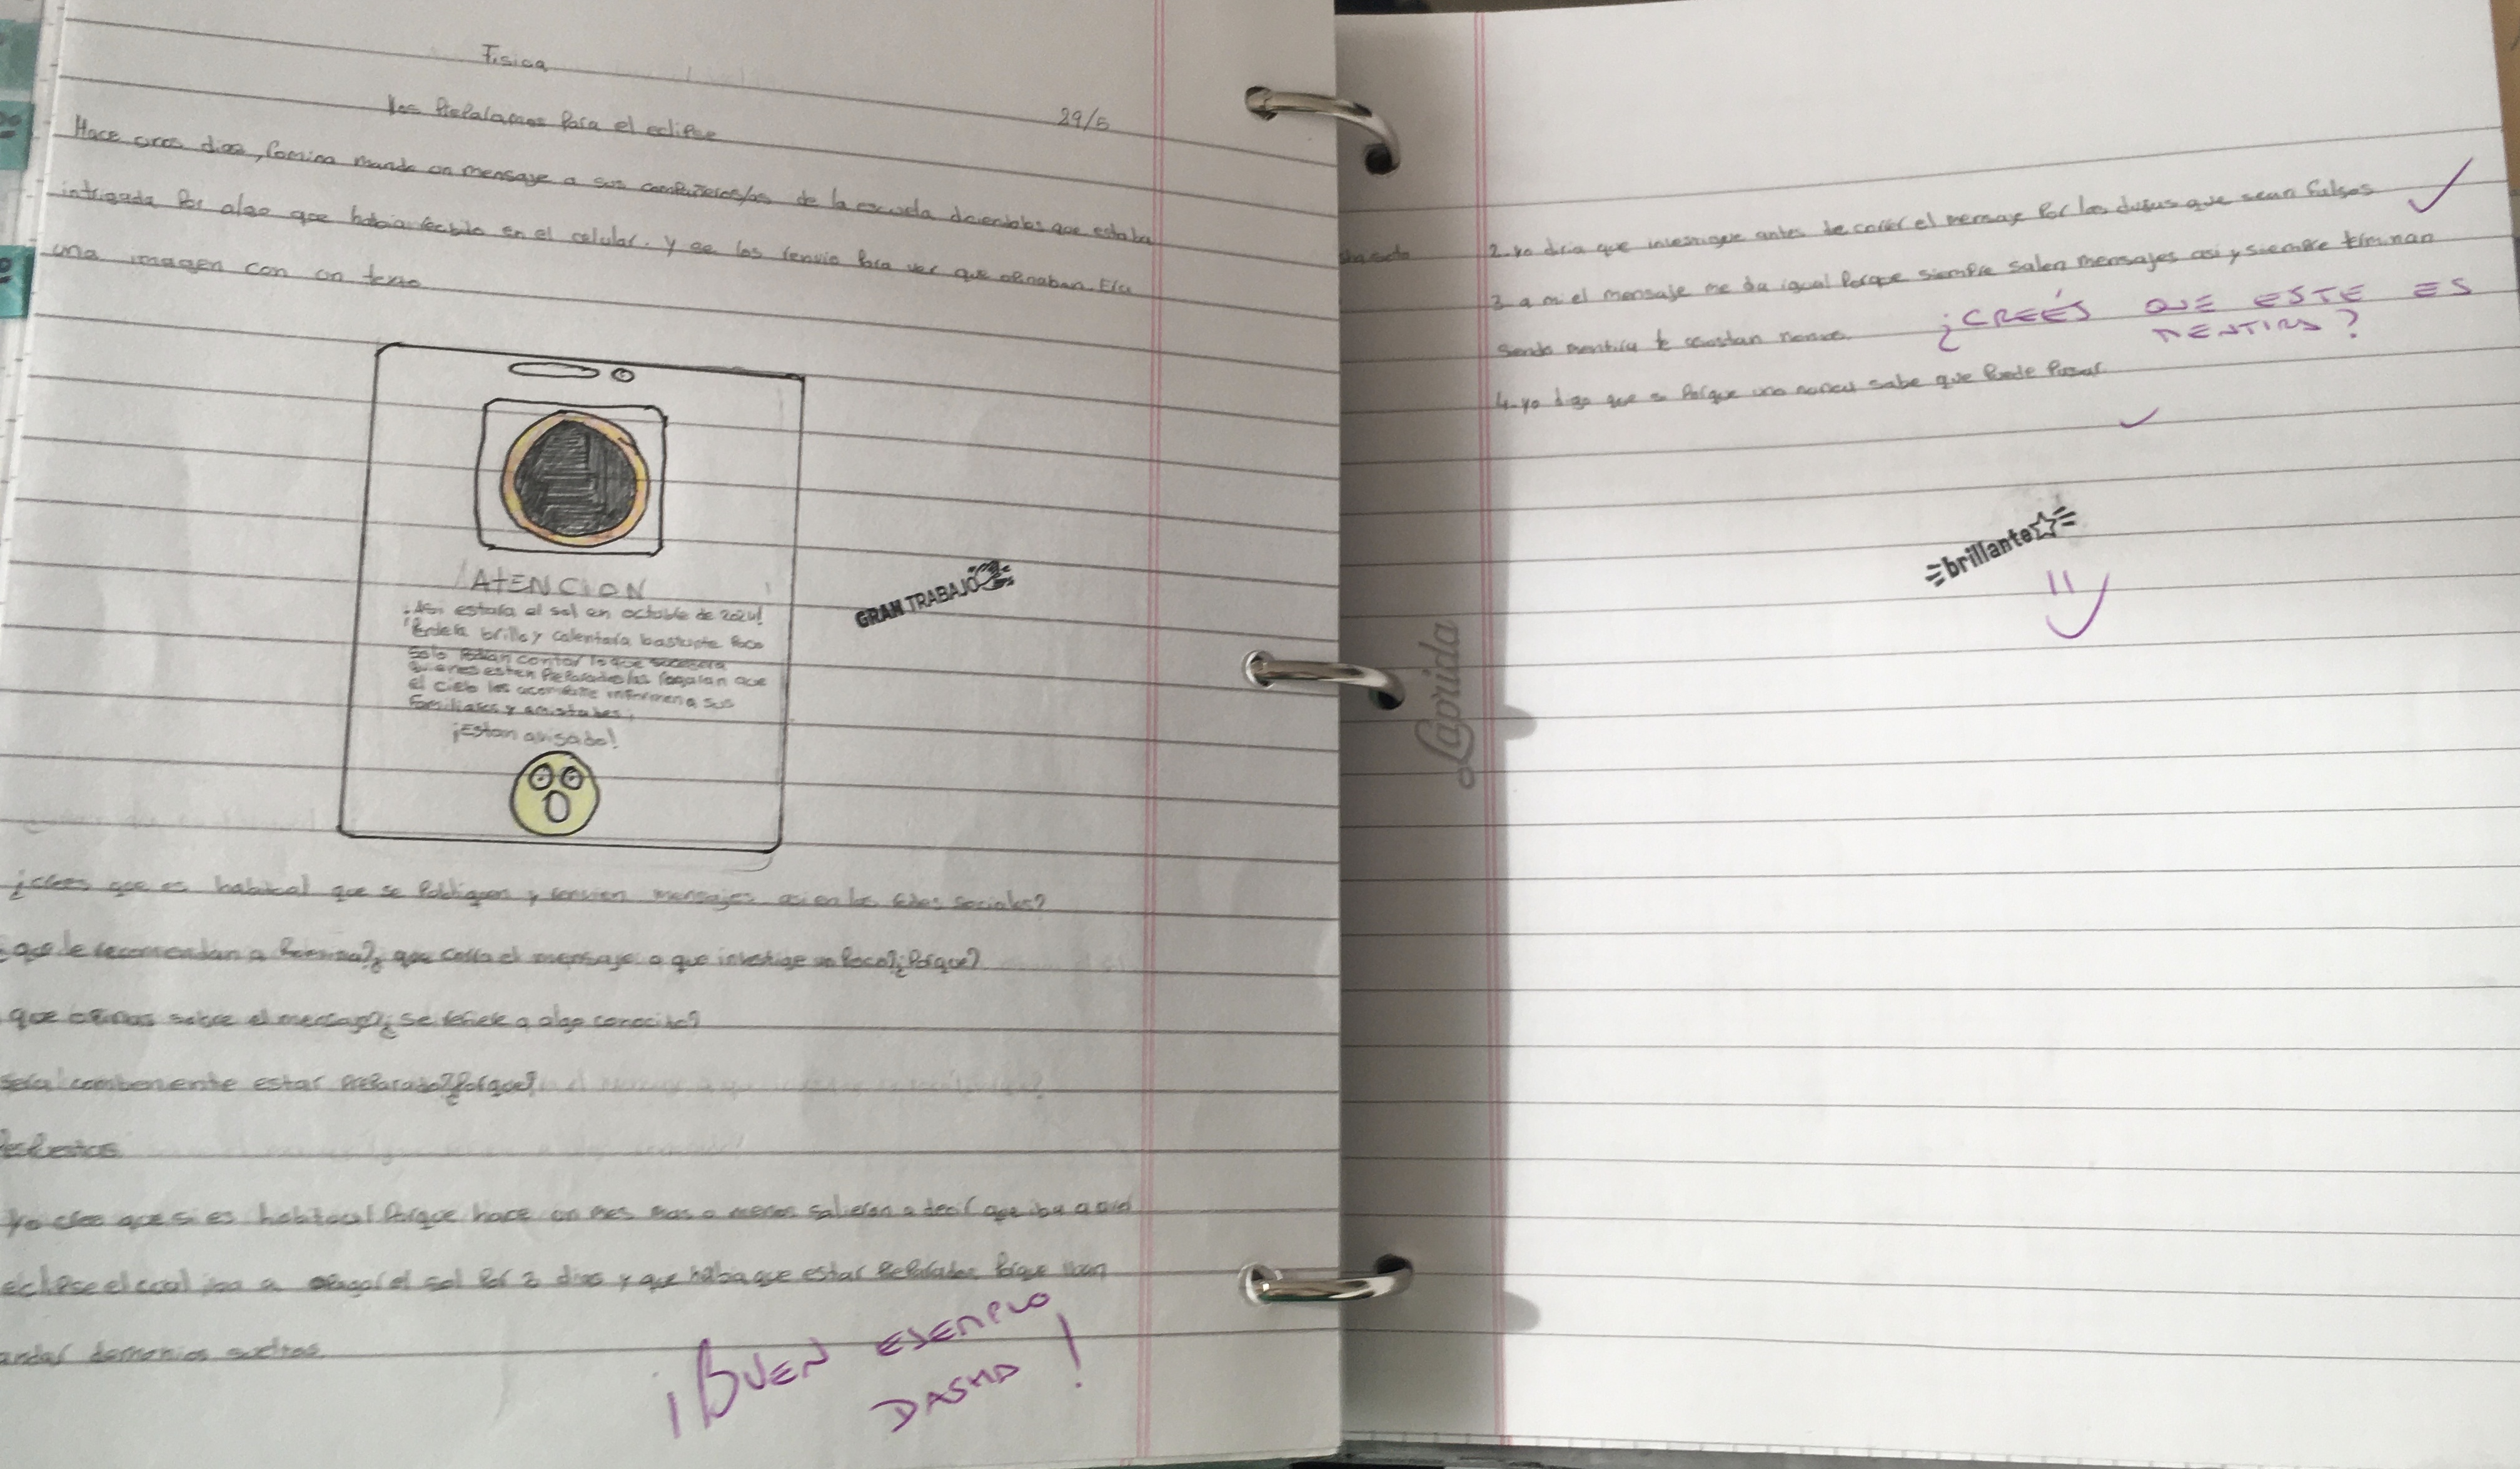 Fisica
Nos Preparamos Para el eclipse
29/5
Hace unos dias, Romina mando un mensaje a sus compañeros/as de la escuela diciendoles que estaba
intrigada Por algo que habia recibido en el celular. y se los renvio Para ver que opinaban. Era
una imagen con un texto
¡ATENCION!
¡Asi estara el sol en octubre de 2024!
Perdera brillo y calentara bastante Poco
Solo Podran contar lo que sucedera
Quienes esten Preparados les rogaran que
el cielo los acompañe informen a sus
Familiares y amistades
¡Estan avisado!
GRAN TRABAJO
¿crees que es habitual que se Publiquen y renvien mensajes asi en las redes sociales?
que le recomendan a Romina?¿ que corra el mensaje o que investige un Poco?¿Porque?
que opinas sobre el mensaje?¿ se refiere a algo conocido?
sera combeniente estar Preparado?¿Porque?
Respestas
yo creo que si es habitual Porque hace un mes mas o menos salieron a decir que iba a aver
eclipse el cual iba a apagar el sol Por 3 dias y que habia que estar Preparados Porque iban
andar demonios sueltos
¡BUEN EJEMPLO
DASHA!
2. yo diria que investigue antes de correr el mensaje Por las dudas que sean falsos
3. a mi el mensaje me da igual Porque siempre salen mensajes asi y siempre terminan
siendo mentira
¿CREÉS QUE ESTE ES
MENTIRA?
4. yo digo que si Porque uno nunca sabe que Puede Pasar
brillante
Laprida